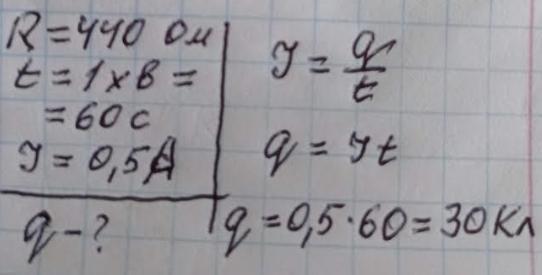 R = 440 Ом
t = 1 хв =
= 60 с
I = 0,5 А
q - ?
I = q/t
q = It
q = 0,5 · 60 = 30 Кл